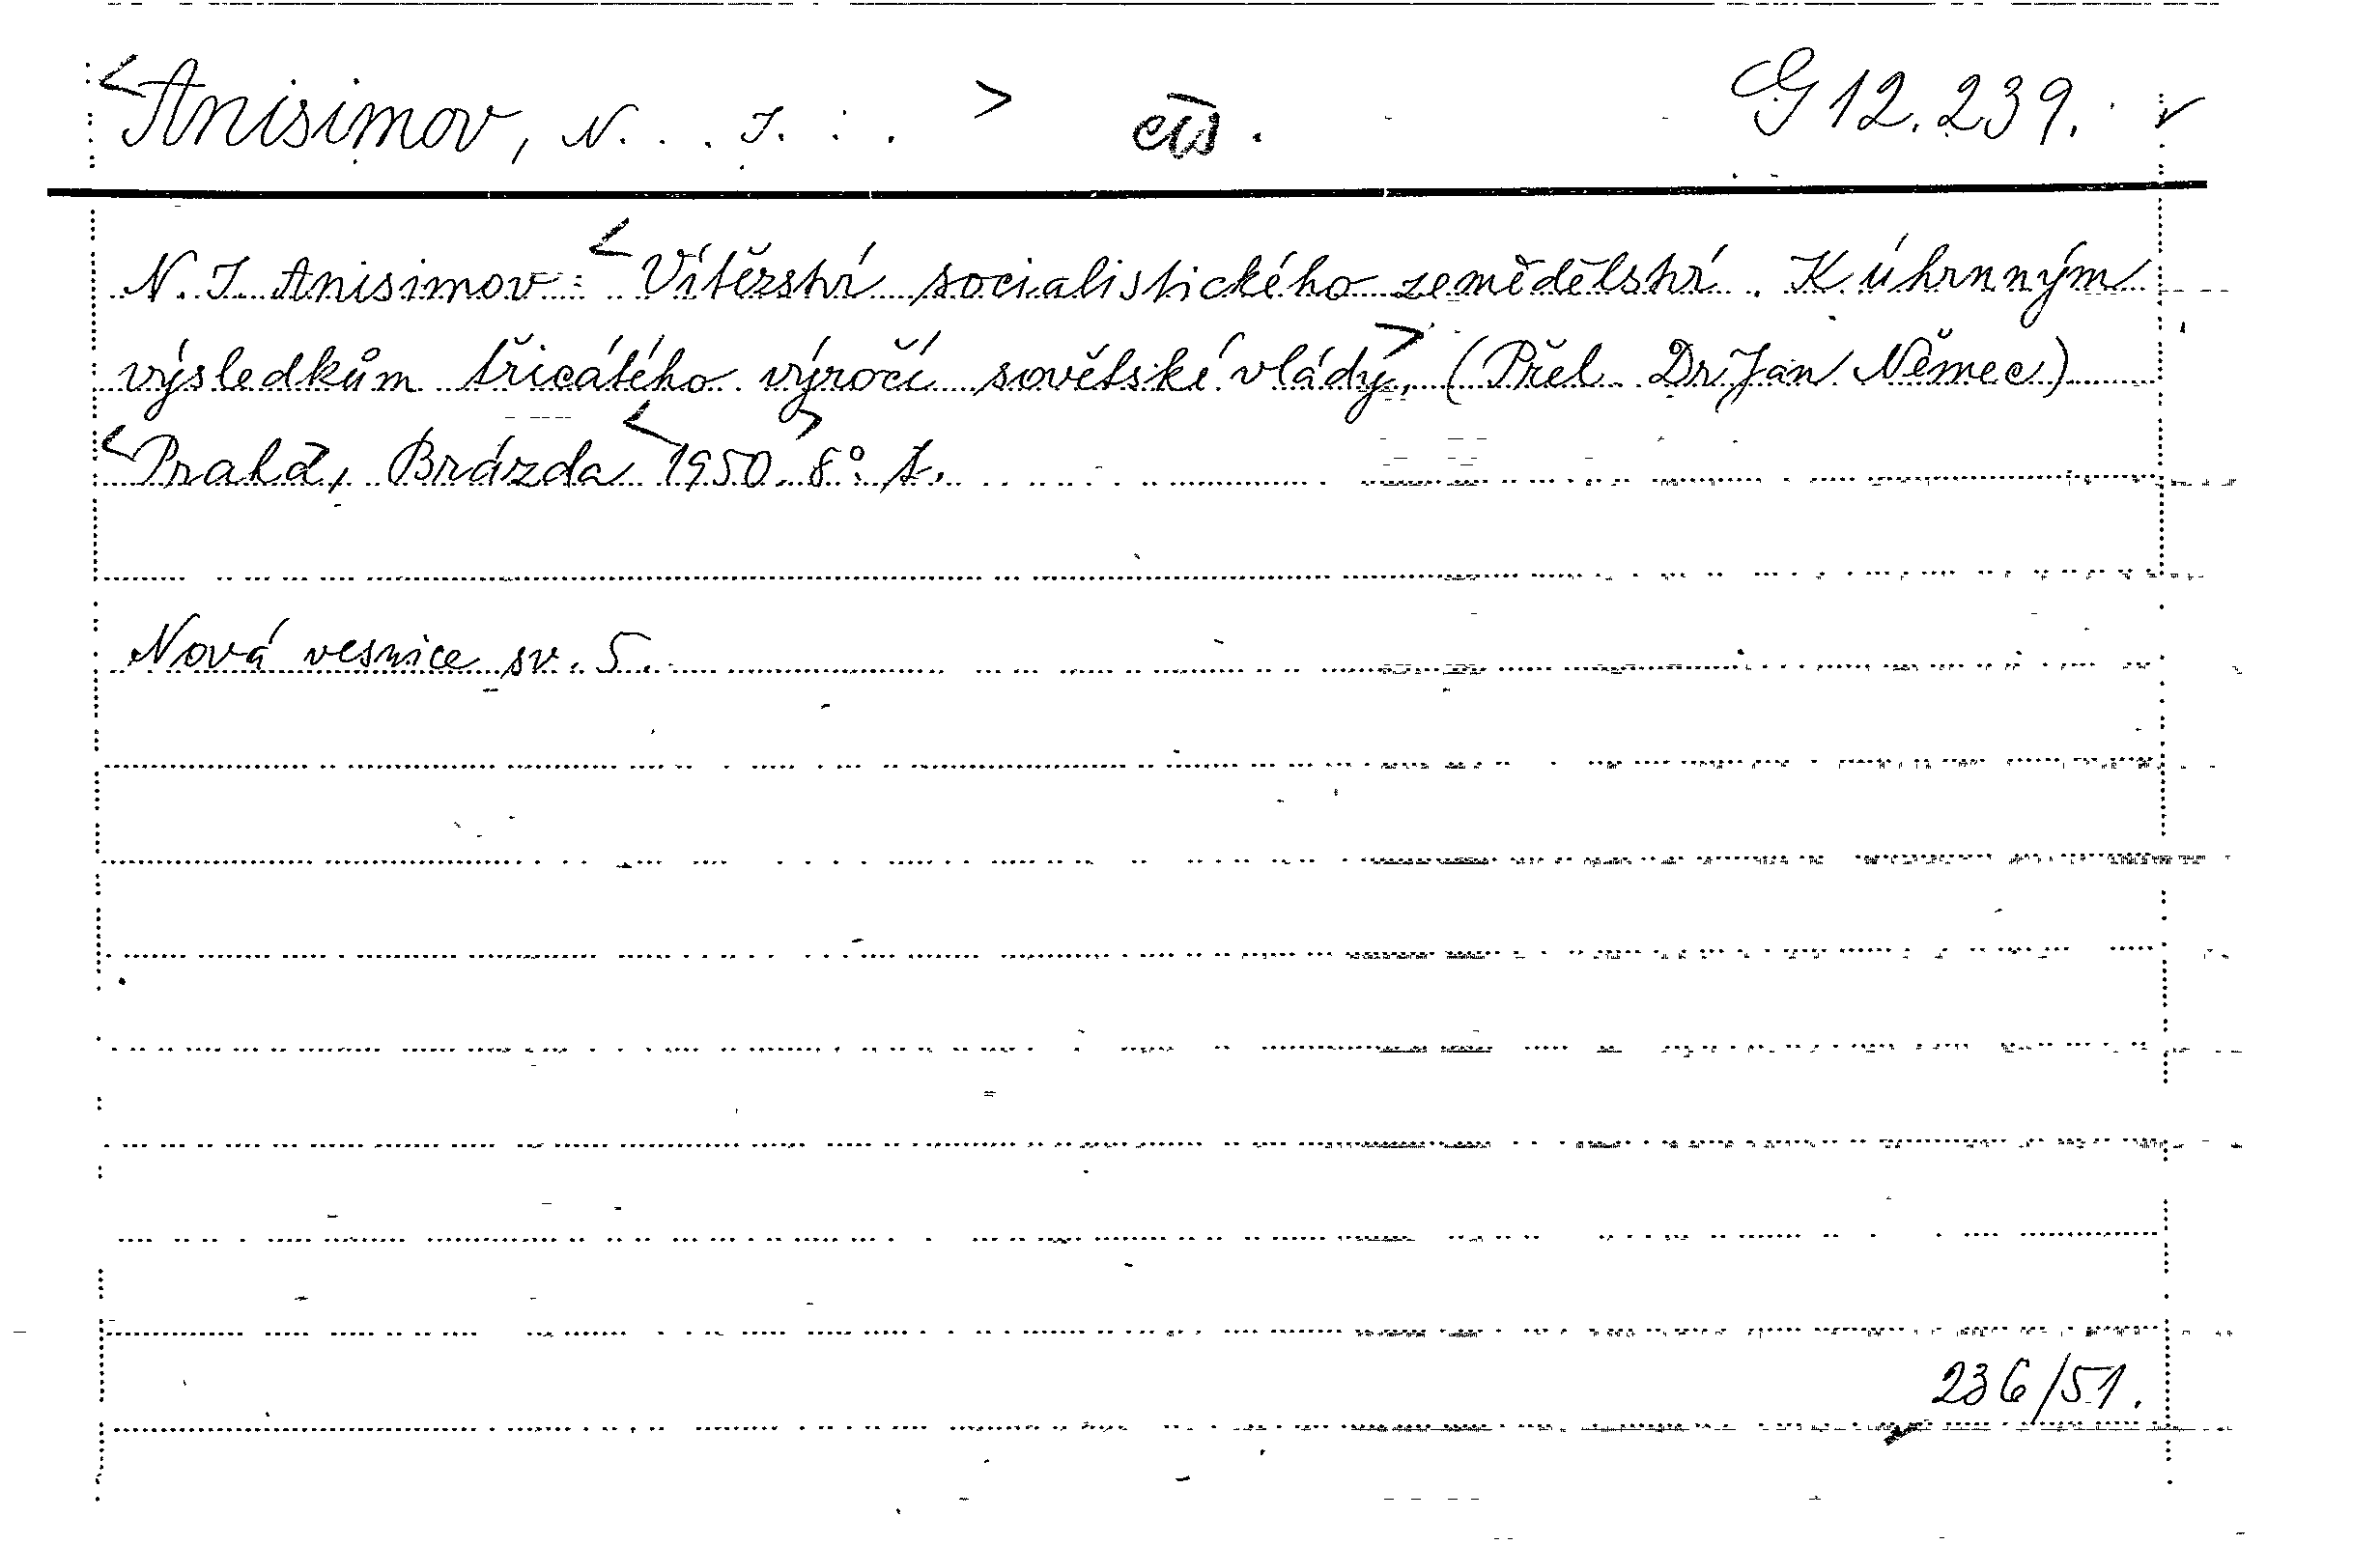 <Anisimov, N. . . I. . . > G 12.239.
N. I. Anisimov: <Vítězství socialistického zemědělství. K úhrnným
výsledkům třicátého výročí sovětské vlády>, (Přel. Dr Jan Němec)
<Praha, Brázda <1950.> 8°. A.
Nová vesnice sv. 5.
236/51.